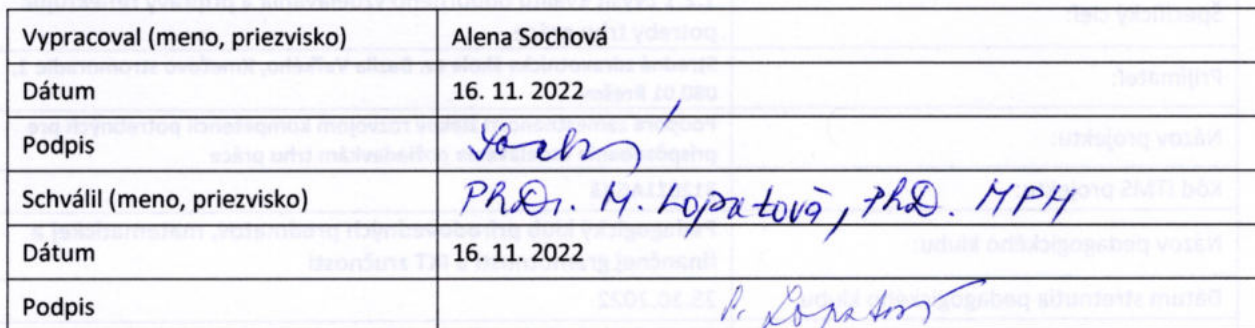 Vypracoval (meno, priezvisko) Alena Sochová
Dátum 16. 11. 2022
Podpis
Schválil (meno, priezvisko) PhDr. M. Lopatová, PhD. MPH
Dátum 16. 11. 2022
Podpis